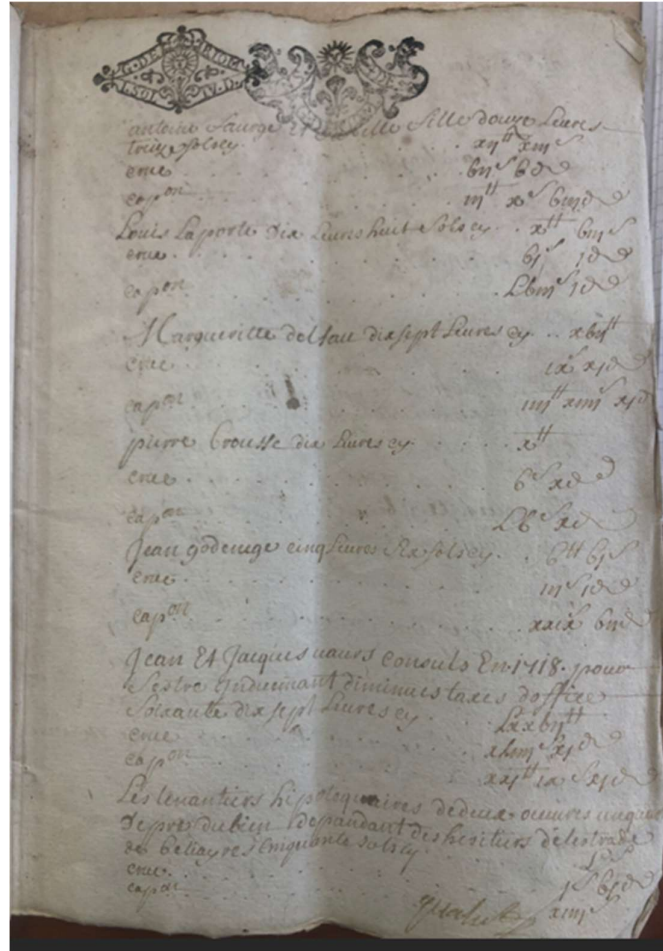 G. DE RIOM
1. SOL. IV. D.
antoine Saurge Et fille douze Livres
treize sols cy . . xii## xiii s
crue . . . bii s b d
cap on . . . iii## x s biii d
Louis Laporte Dix Livres huit Sols cy . . x## biii s
crue . . . bi s i d
cap on . . . Lbiii s i d
Margueritte delfau dix sept Livres cy . . xbii##
crue . . . ix s xi d
cap on . . . iiii## xiiii s xi d
pierre Crousse dix Livres cy . . . x##
crue . . . b s x d
cap on . . . Lb s x d
Jean godenige cinq Livres Six Sols cy . b## bi s
crue . . . iii s i d
cap on . . . xxix bii d
Jean Et Jacques vaurs Consuls En 1718. pour
S'estre Induement diminues taxes doffice
Soixante dix sept Livres cy . . Lxxbii##
crue . . . xLiiii s xi d
cap on . . . xxi## ix s xi d
Les tenantiers hipotequaires de deux oeuvres
De pre du bien dependant des heritiers de lestrade
de cinquante sols cy
crue . . . i s bi d
cap on . . . xiiii s